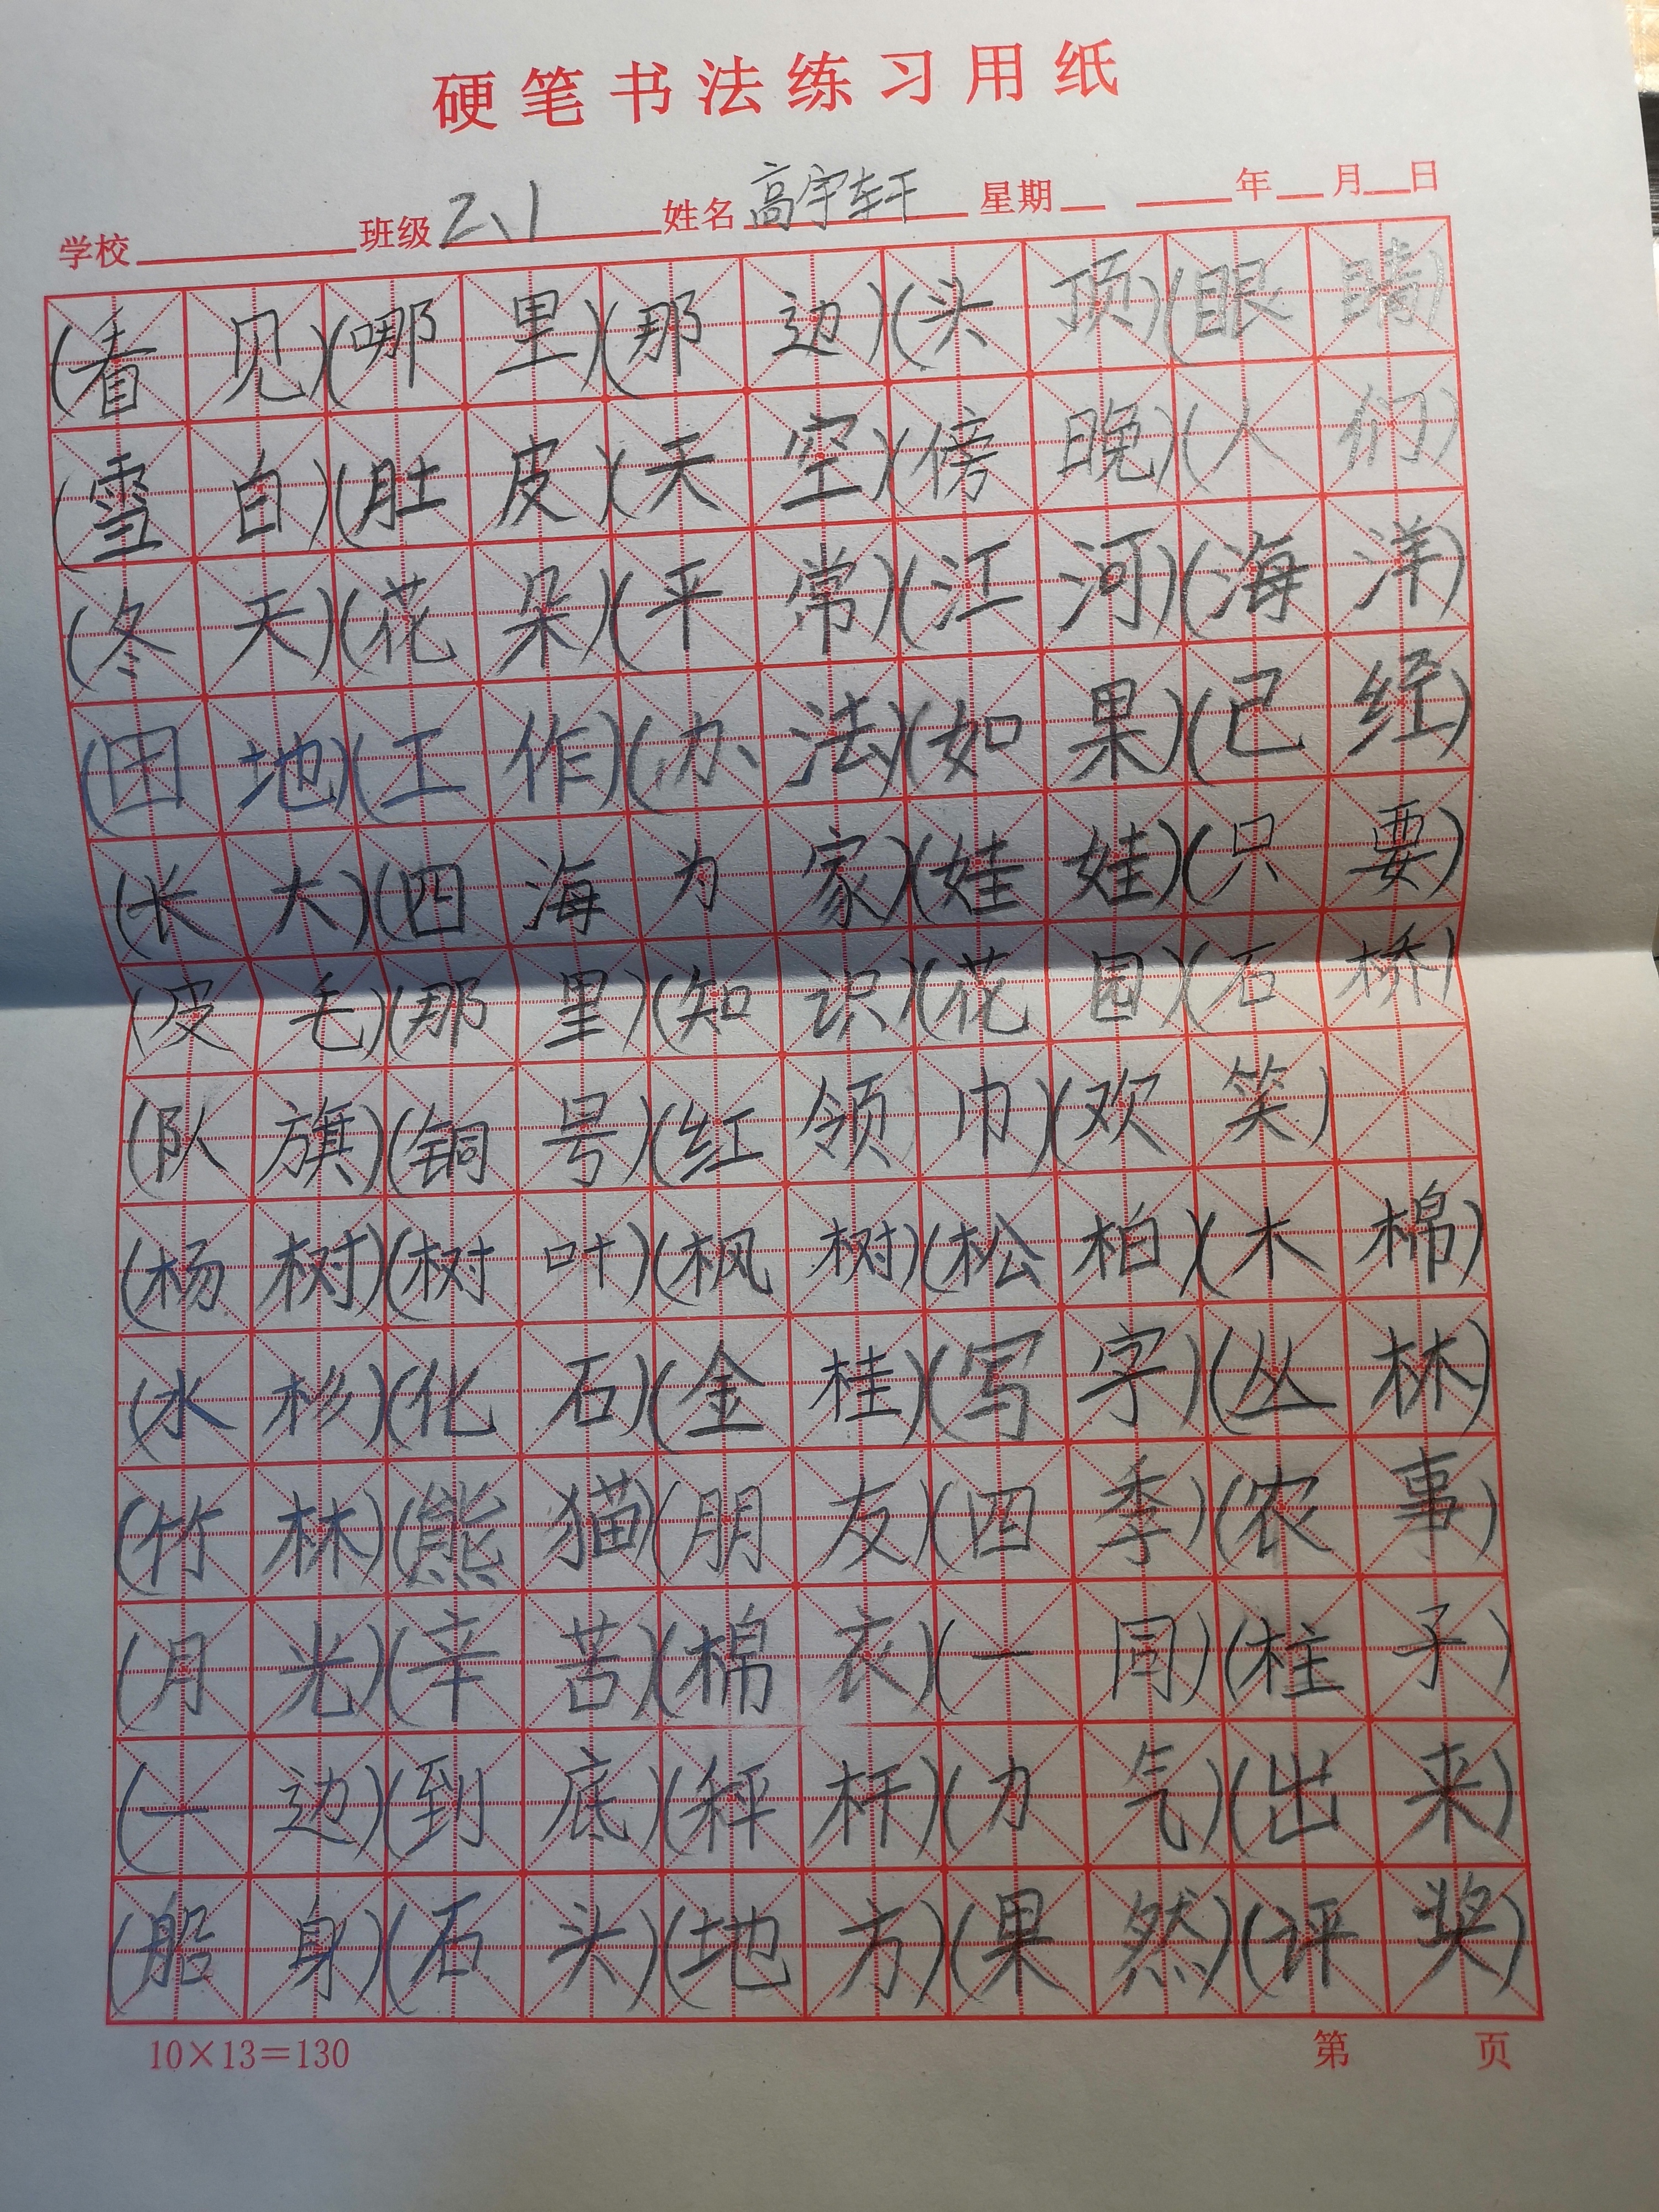 硬笔书法练习用纸
学校 班级 2、1 姓名 高宇轩 星期 年 月 日
(看见)(哪里)(那边)(头顶)(眼睛)
(雪白)(肚皮)(天空)(傍晚)(人们)
(冬天)(花朵)(平常)(江河)(海洋)
(田地)(工作)(办法)(如果)(已经)
(长大)(四海为家)(娃娃)(只要)
(皮毛)(那里)(知识)(花园)(石桥)
(队旗)(铜号)(红领巾)(欢笑)
(杨树)(树叶)(枫树)(松柏)(木棉)
(水杉)(化石)(金桂)(写字)(丛林)
(竹林)(熊猫)(朋友)(四季)(农事)
(月光)(辛苦)(棉衣)(一同)(柱子)
(一边)(到底)(秤杆)(力气)(出来)
(船身)(石头)(地方)(果然)(评奖)
10×13=130 第 页